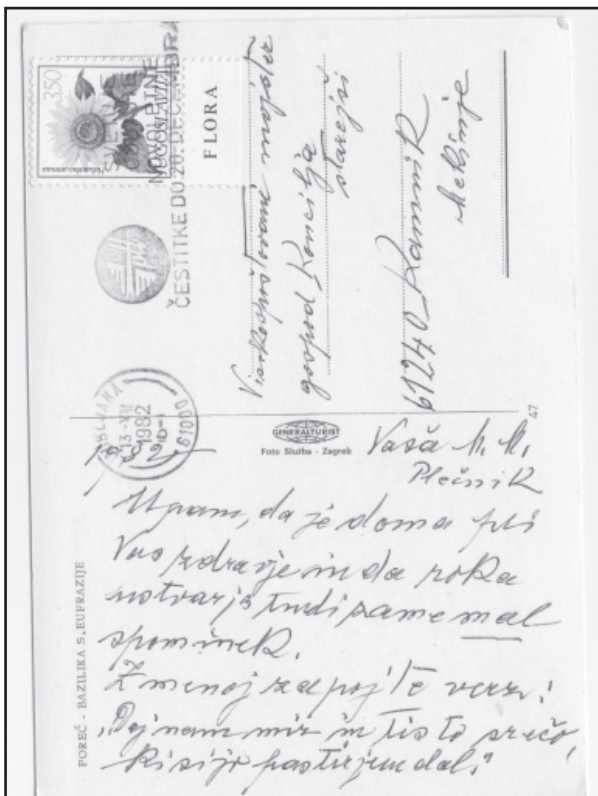 350
JUGOSLAVIJA
FLORA
NOVOLETNE
ČESTITKE DO 20. DECEMBRA
LJUBLJANA
13-XII
1982
61000
Visokospoštovani mojster
gospod Koncilja
starejši
61240 Kamnik
Mekinje
GENERALTURIST
Foto Služba - Zagreb
47
POREČ - BAZILIKA S. EUFRAZIJE
1982
Vaša M. M.
Plečnik
Upam, da je doma pri
Vas zdravje in da roka
ustvarja tudi zame mal
spominek.
Z menoj zapojte verz:
"Dej nam mir in tisto srečo,
ki si jo pastirjem dal."